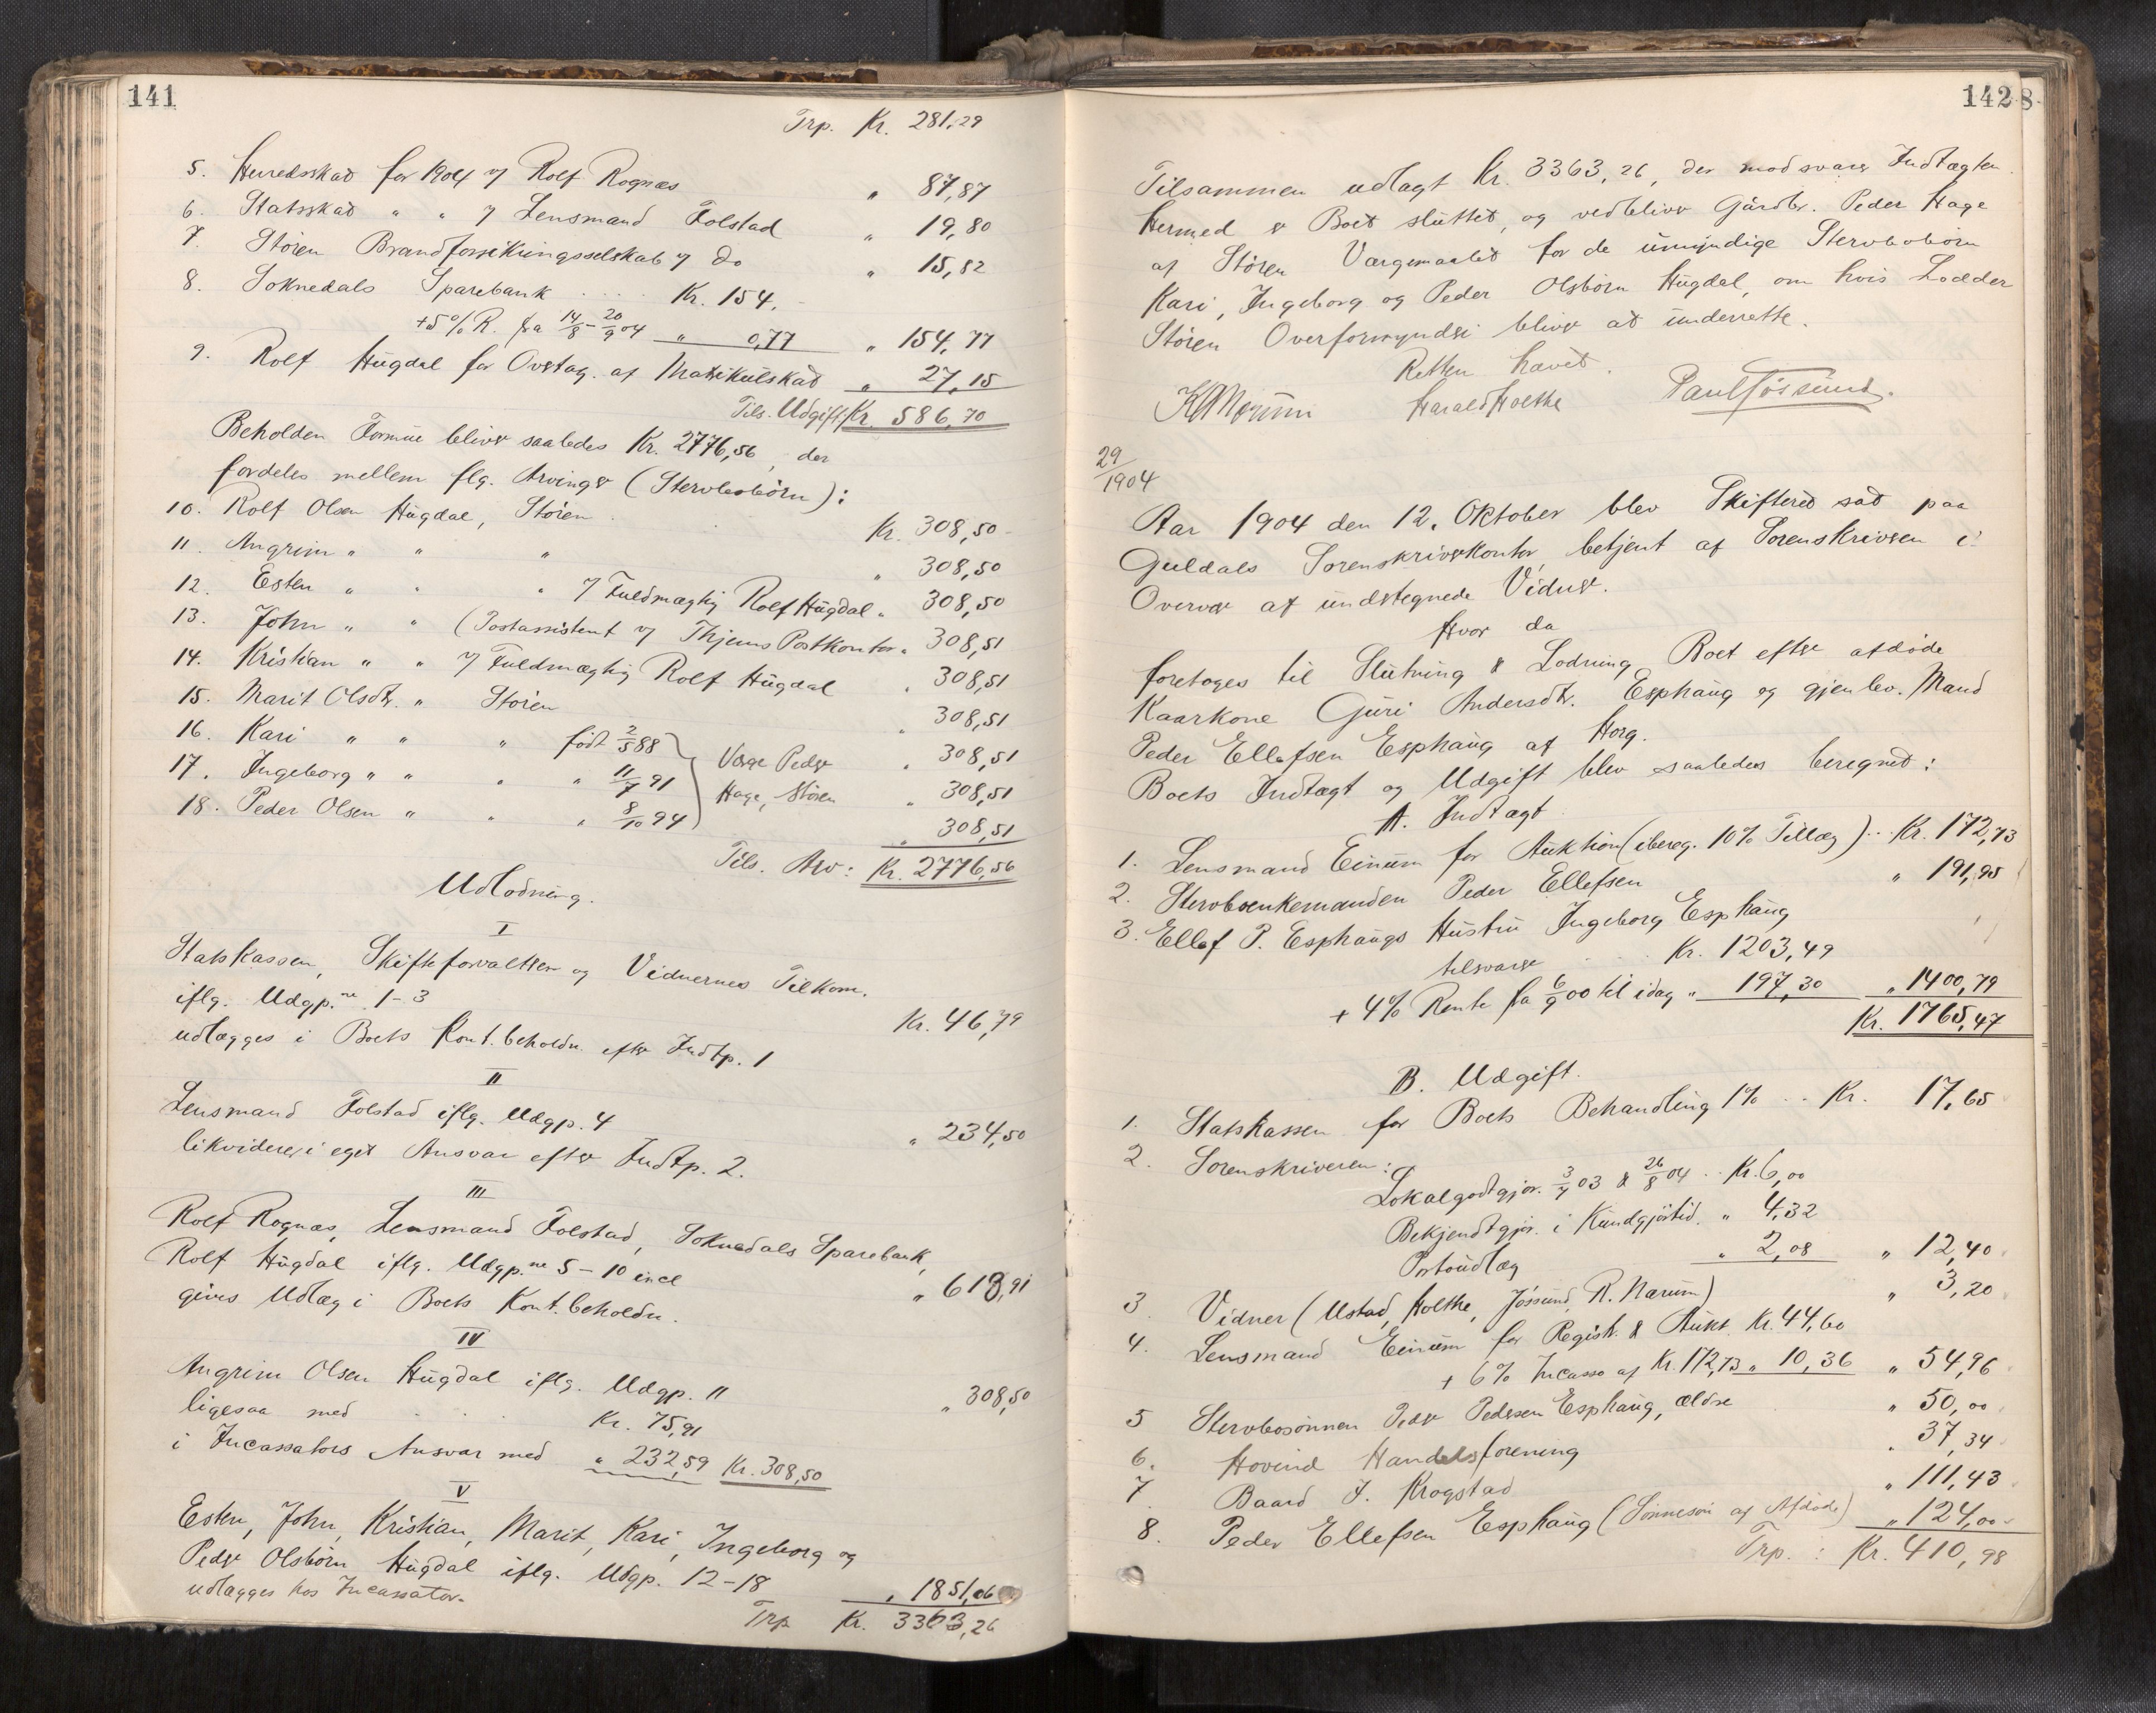 141
Trp. Kr. 281,29
5. Herredsskat for 1904 v/ Rolf Rognæs " 87,87
6. Statsskat " " v/ Lensmand Folstad " 19,80
7. Stören Brandforsikringsselskab v/ do " 15,82
8. Soknedals Sparebank .... Kr. 154,-
+5% R. fra 14/8-20/9 04 " 0,77 " 154,77
9. Rolf Hugdal for Overtag. af Matrikulskat " 27,15
Tils. Udgift: Kr. 586,70
Beholden Formue bliver saaledes Kr. 2776,56, der
fordeles mellem flg. Arvinger (Stervbobörn):
10. Rolf Olsen Hugdal, Stören . . Kr. 308,50
11. Angrim " " " " 308,50
12. Esten " " " v/ Fuldmægtig Rolf Hugdal " 308,50
13. John " " (Postassistent v/ Thjems Postkontor " 308,51
14. Kristian " " v/ Fuldmægtig Rolf Hugdal " 308,51
15. Marit Olsdtr. " Stören " 308,51
16. Kari " " " födt 2/5 88 Værge Peder " 308,51
17. Ingeborg " " " " 11/7 91 Hage, Stören " 308,51
18. Peder Olsen " " " 8/10 94 " 308,51
Tils. Arv: Kr. 2776,56
Udlodning.
I
Statskassen, Skifteforvalteren og Vidnernes Tilkom.
iflg. Udgp.ne 1-3 Kr. 46,79
udlægges i Boets Kont. beholdn. efter Indtp. 1
II
Lensmand Folstad iflg. Udgp. 4 " 234,50
likviderer i eget Ansvar efter Indtp. 2.
III
Rolf Rognæs, Lensmand Folstad, Soknedals Sparebank,
Rolf Hugdal iflg. Udgp.ne 5-10 incl " 613,91
gives Udlæg i Boets Kont. beholdn.
IV
Angrim Olsen Hugdal iflg. Udgp. 11 " 308,50
ligesaa med . . . Kr. 75,91
i Incassators Ansvar med " 232,59 Kr. 308,50
V
Esten, John, Kristian, Marit, Kari, Ingeborg og
Peder Olsbörn Hugdal iflg. Udgp. 12-18
udlægges hos Incassator. " 1851,06
Trp Kr. 3363,26
142
8
Tilsammen udlagt Kr. 3363,26, der modsvarer Indtægten.
Hermed er Boet sluttet, og vedbliver Gårdbr. Peder Hage
af Stören Værgemaalet for de umyndige Stervbobörn
Kari, Ingeborg og Peder Olsbörn Hugdal, om hvis Lodder
Stören Overformynderi bliver at underrette.
Retten hævet.
Harald Holthe Paul Jössund.
29/1904
Aar 1904 den 12. Oktober blev Skifteret sat paa
Guldals Sorenskriverkontor, betjent af Sorenskriveren i
Overvær af undertegnede Vidner.
Hvor da
foretoges til Slutning & Lodning Boet efter afdöde
Kaarkone Guri Andersdtr. Esphaug og gjenlev. Mand
Peder Ellefsen Esphaug af Horg.
Boets Indtægt og Udgift blev saaledes beregnet:
A. Indtægt
1. Lensmand Einum for Auktion (ibereg. 10% Tillæg) .. Kr. 172,73
2. Stervboenkemanden Peder Ellefsen " 191,95
3. Ellef P. Esphaugs Hustru Ingeborg Esphaug
tilsvarer . . . Kr. 1203,49
+ 4% Rente fra 6/9 00 til idag " 197,30 " 1400,79
Kr. 1765,47
B. Udgift.
1. Statskassen for Boets Behandling 1% .. Kr. 17,65
2. Sorenskriveren:
Lokalgodtgjör. 3/7 03 & 26/8 04 .. Kr. 6,00
Bekjendtgjör. i Kundgjörtid. " 4,32
Portoudlæg " 2,08 " 12,40
3 Vidner (Ustad, Holthe, Jössund, R. Narum) " 3,20
4. Lensmand Einum for Registr. & Aukt. Kr. 44,60
+ 6% Incasso af Kr. 172,73 " 10,36 " 54,96
5 Stervbosönnen Peder Pedersen Esphaug, ældre " 50,00
6. Hovind Handelsforening " 37,34
7. Baard J. Krogstad " 111,43
8. Peder Ellefsen Esphaug (Sönnesön af Afdöde) " 124,00
Trp.: Kr. 410,98